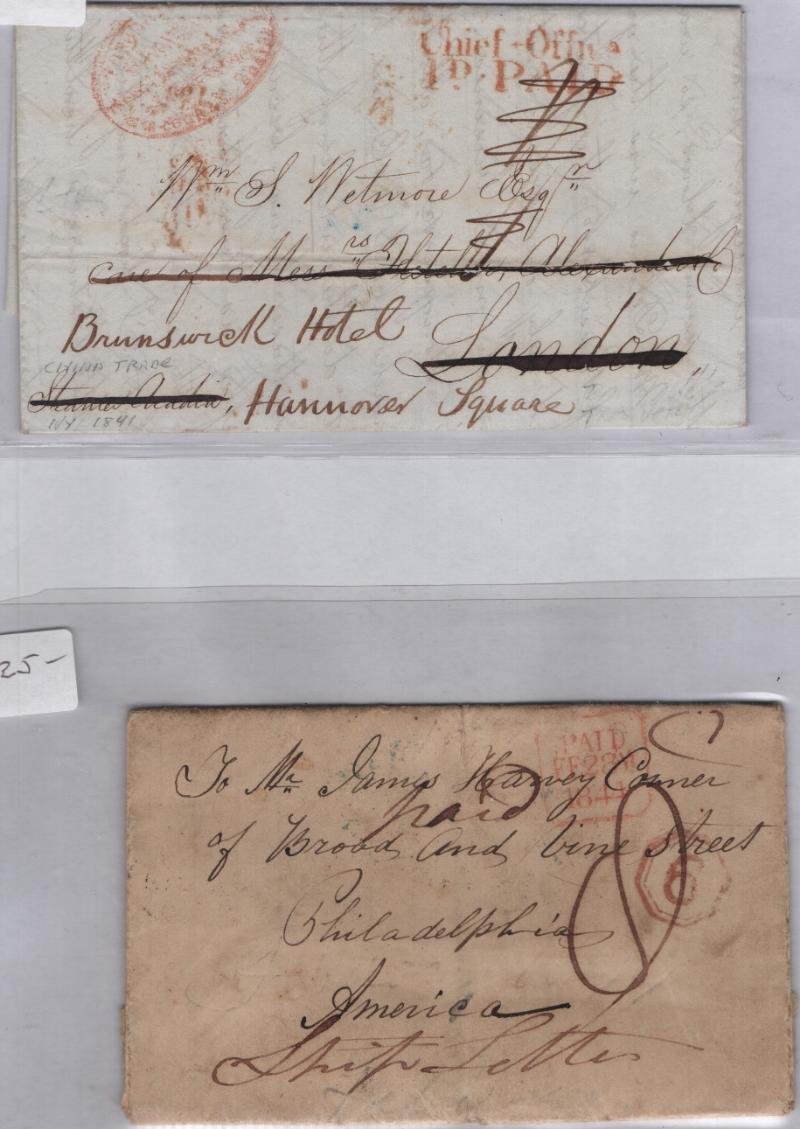 Chief Office
1D. PAID
Wm S. Wetmore Esqr
care of Messrs Fletcher, Alexander & Co
Brunswick Hotel
London,
CHINA TRADE
Steamer Acadia, Hannover Square
NY 1841
25-
PAID
To Mr. James Harvey Corner
paid
of Broad And Vine Street
8
6
Philadelphia
America
Ship Letter